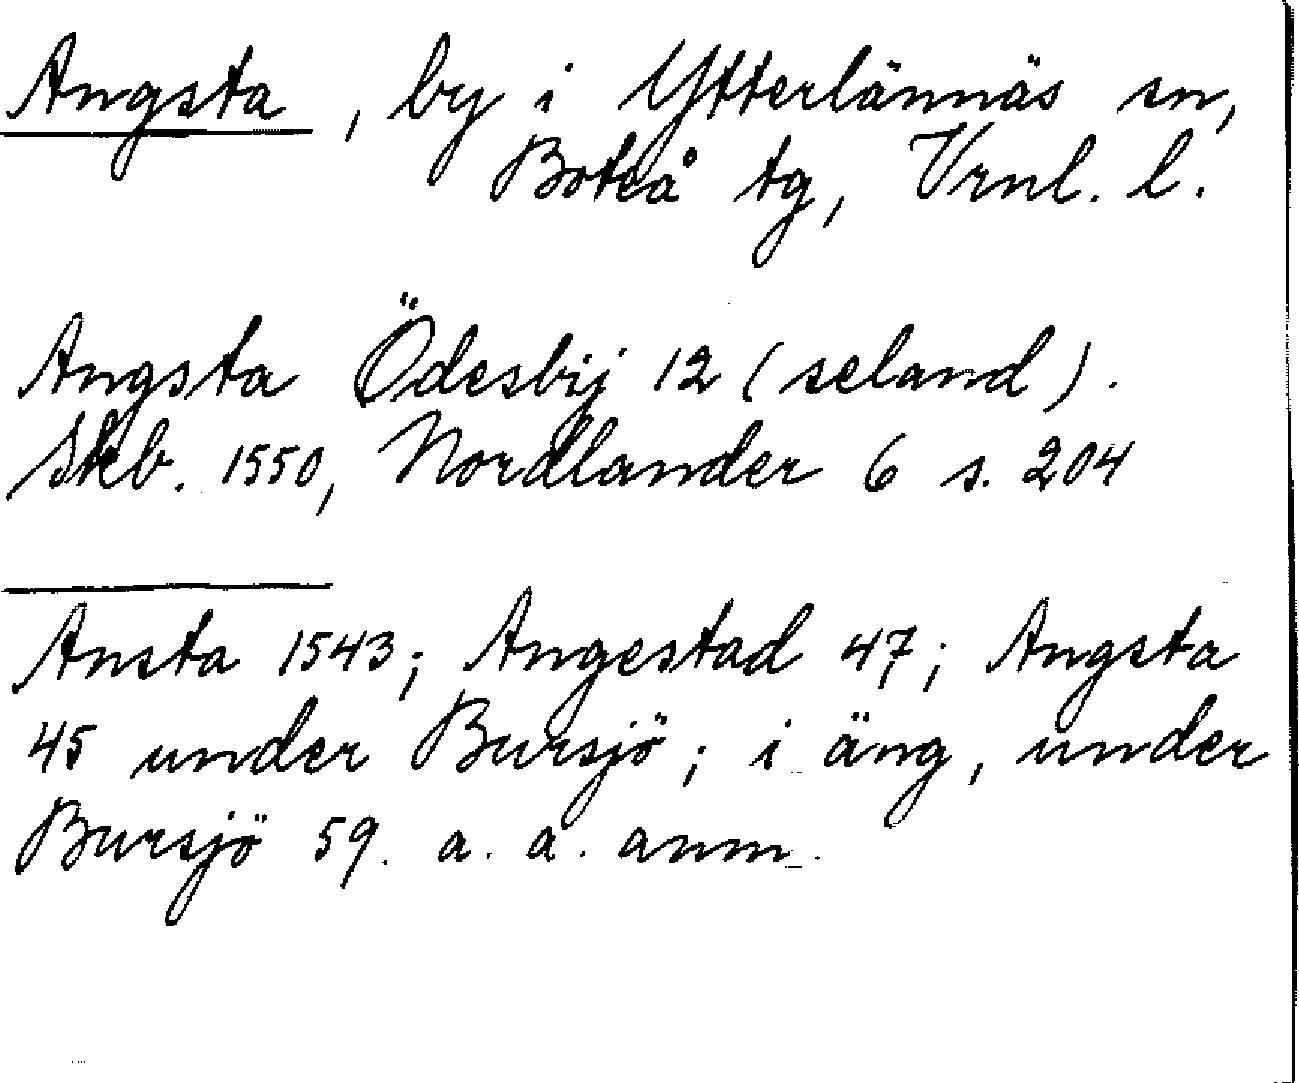 Angsta, by i Ytterlännäs sn,
Boteå tg, Vrnl. l.
Angsta Ödesbij 12 (seland).
Skb. 1550, Nordlander 6 s. 204
Ansta 1543; Angestad 47; Angsta
45 under Bursjö; i äng, under
Bursjö 59. a. a. anm.